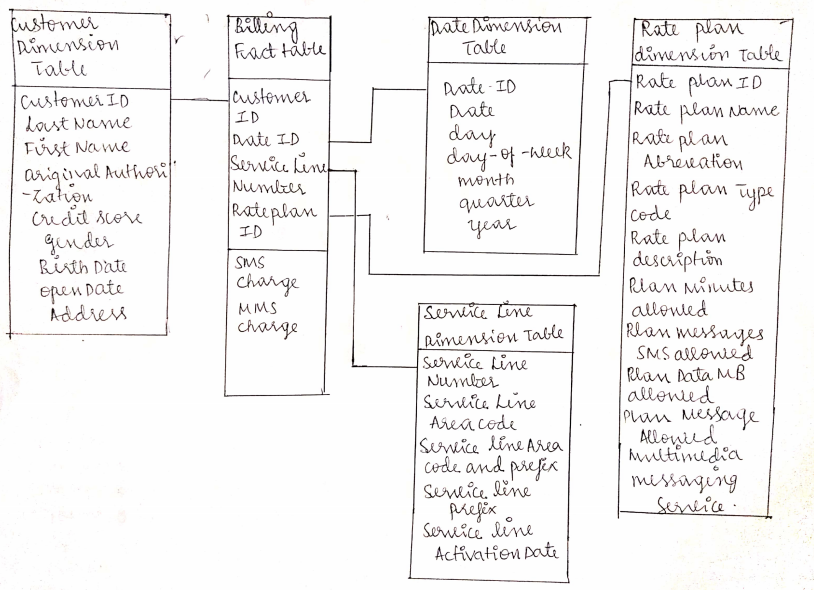 Customer
Dimension
Table
Customer ID
Last Name
First Name
original Authori
-zation
Credit score
gender
Birth Date
open Date
Address
Billing
Fract table
Customer
ID
Date ID
Service Line
Number
Rateplan
ID
SMS
charge
MMS
charge
Date Dimension
Table
Date-ID
Date
day
day-of-week
month
quarter
year
Service Line
Dimension Table
Service Line
Number
Service Line
Area code
Service line Area
code and prefix
Service line
prefix
Service line
Activation Date
Rate plan
dimension Table
Rate plan ID
Rate plan Name
Rate plan
Abreveation
Rate plan Type
code
Rate plan
description
Plan Minutes
allowed
Plan messages
SMS allowed
Plan Data MB
allowed
Plan Message
Allowed
Multimedia
messaging
Service.